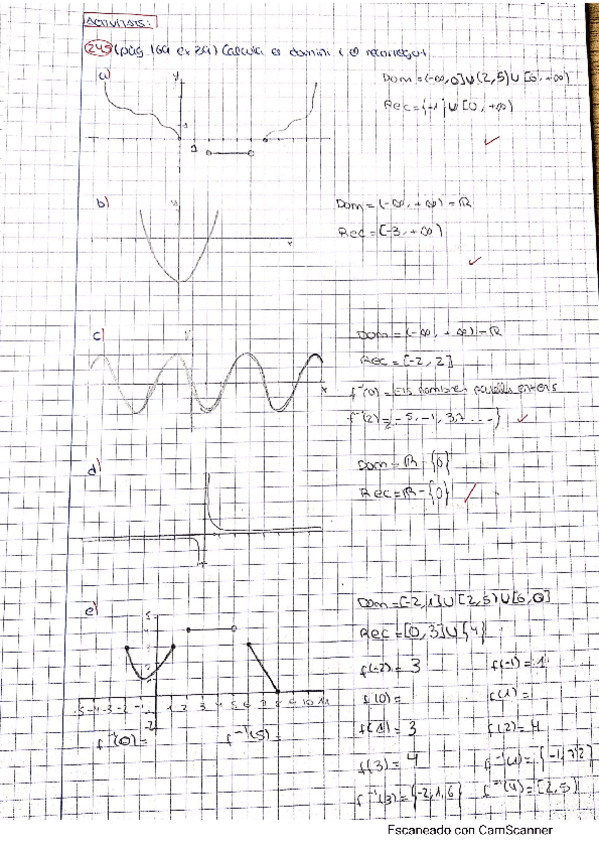 ACTIVITATS:
249 (pàg 169 ex 29) Calcula es domini i el recorregut
a) y Dom = (-∞, 0] ∪ (2, 5) ∪ [6, +∞)
Rec = {-1} ∪ [0, +∞)
b) y Dom = (-∞, +∞) = ℝ
Rec = [-3, +∞)
x
c) Dom = (-∞, +∞) = ℝ
Rec = [-2, 2]
x f⁻¹(0) = Els nombres parells enters
f⁻¹(2) = -5, -1, 3, 7 ...}
d) Dom = ℝ - {0}
Rec = ℝ - {0}
e) Dom = [-2, 1] ∪ [2, 5) ∪ [6, 8]
Rec = [0, 3] ∪ {4}
f(-2) = 3 f(-1) = 1
f(0) = f(1) =
-5 -4 -3 -2 -1 1 2 3 4 5 6 7 8 9 10 11
-2
f⁻¹(0) = f⁻¹(5) = f(1) = 3 f(2) = 4
f(3) = 4
f⁻¹(3) = {-2, 1, 6} f⁻¹(4) = [2, 5)
Escaneado con CamScanner